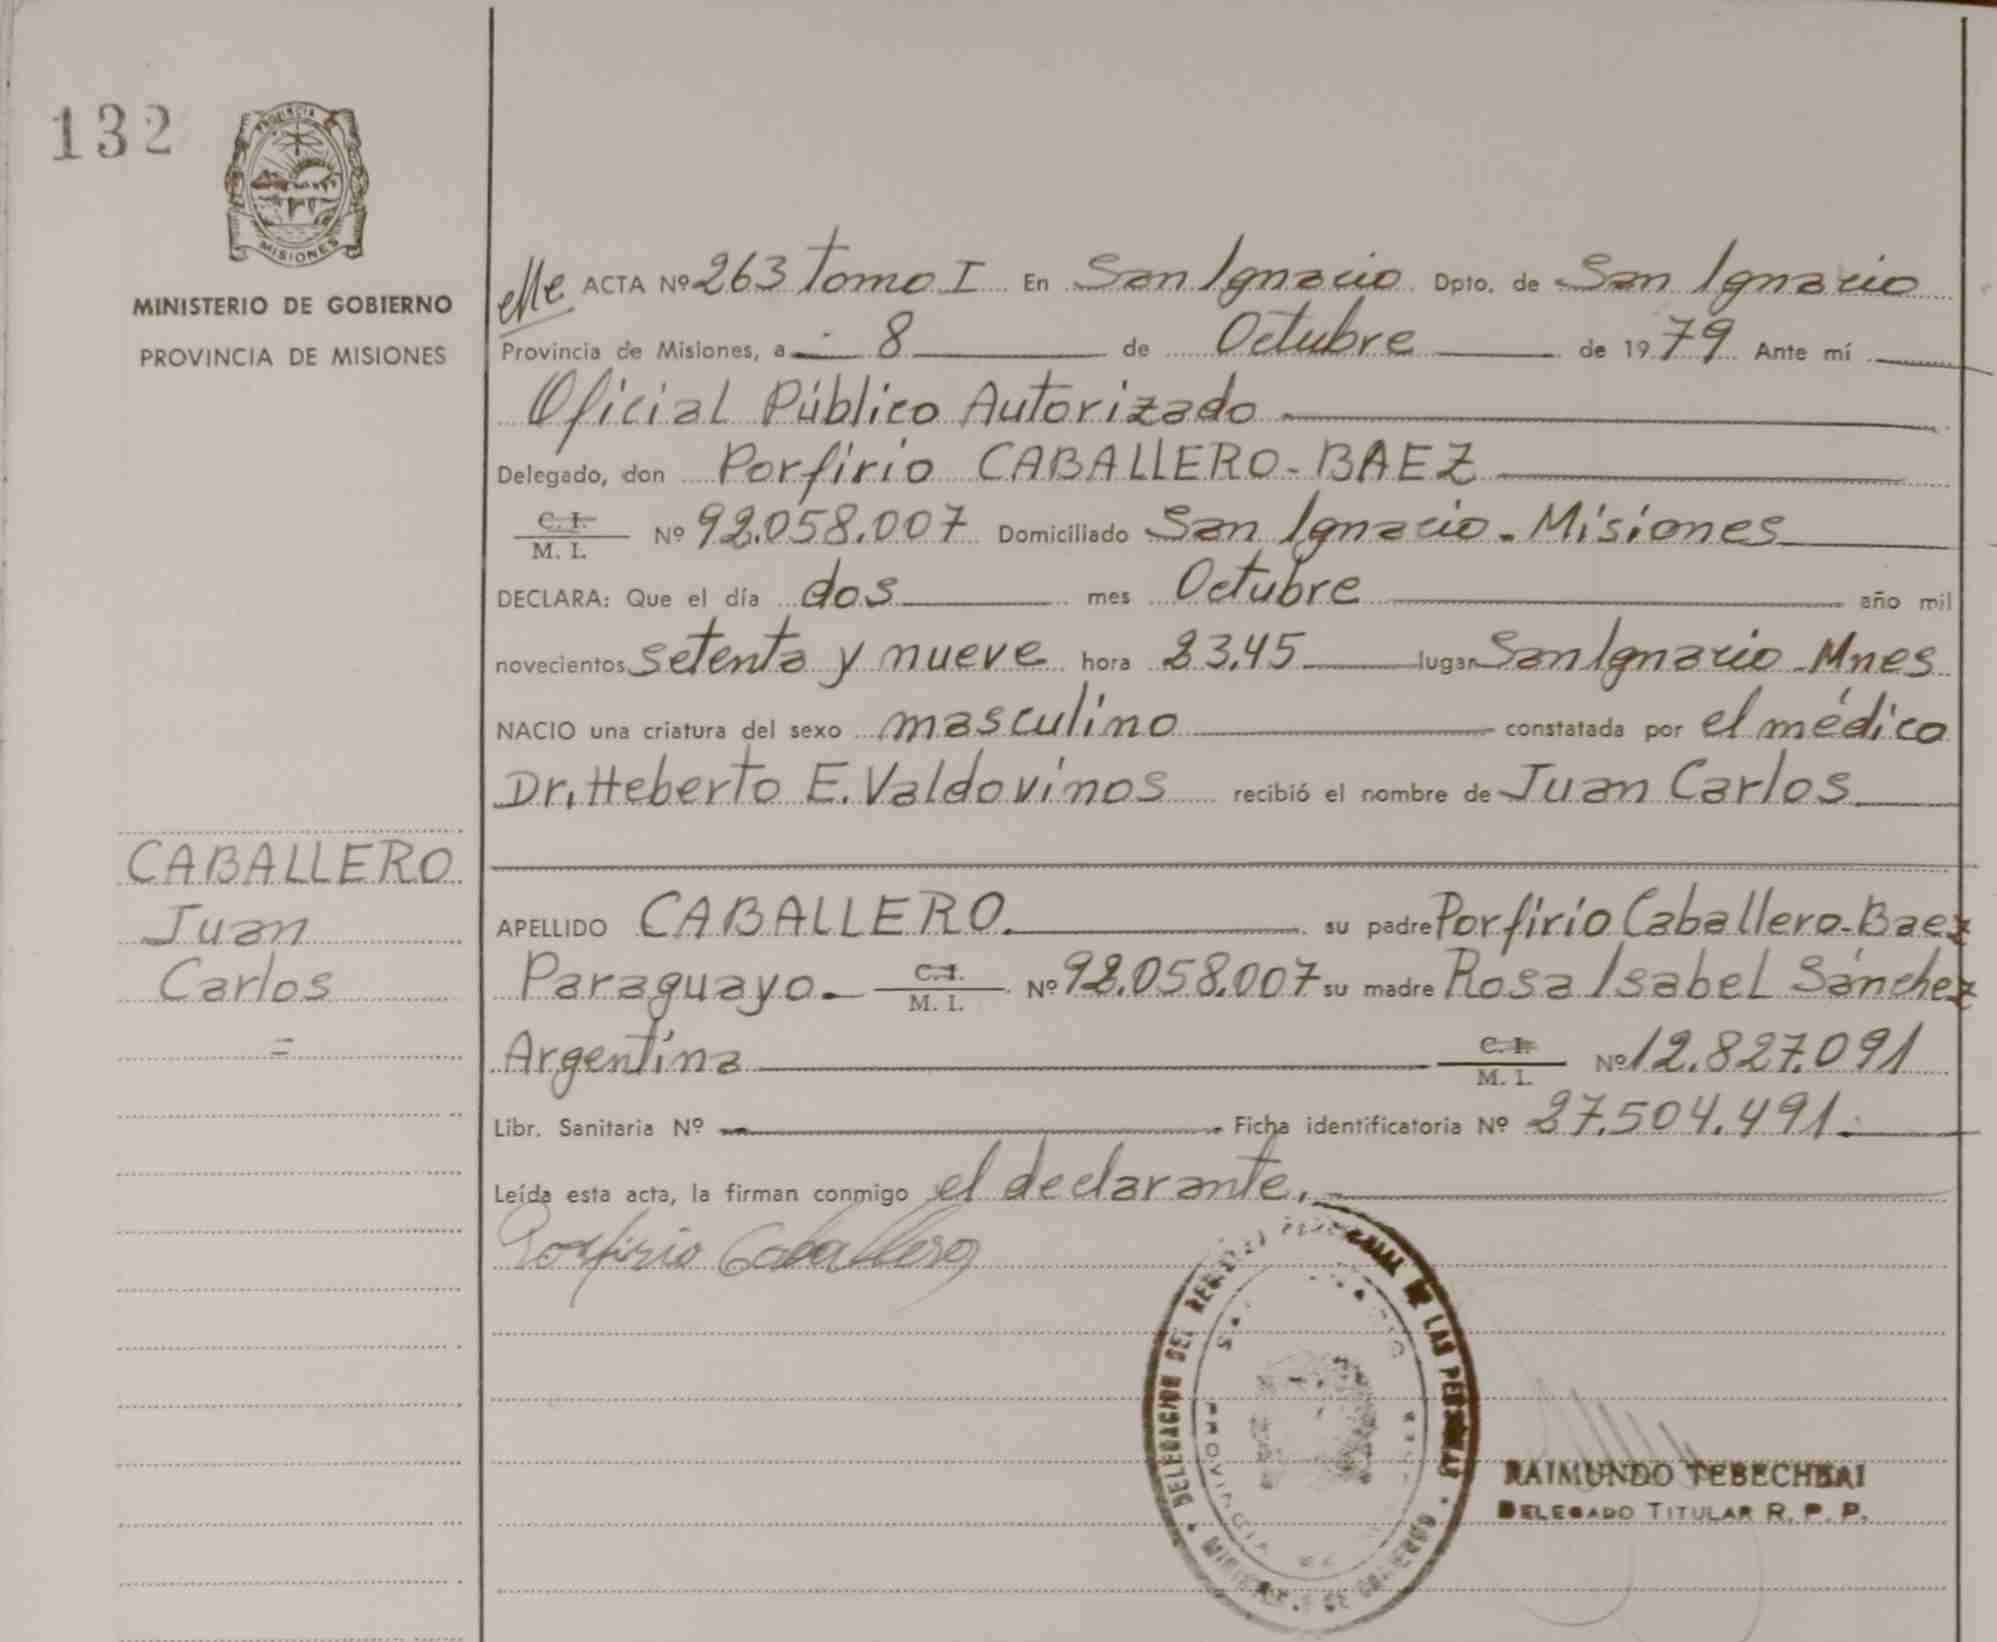 132
PROVINCIA DE
MISIONES
MINISTERIO DE GOBIERNO
PROVINCIA DE MISIONES
ACTA Nº 263 Tomo I En San Ignacio Dpto. de San Ignacio
Provincia de Misiones, a 8 de Octubre de 1979 Ante mí
Oficial Público Autorizado
Delegado, don Porfirio CABALLERO-BAEZ
C. I.
M. I. Nº 92.058.007 Domiciliado San Ignacio - Misiones
DECLARA: Que el día dos mes Octubre año mil
novecientos setenta y nueve hora 23,45 lugar San Ignacio - Mnes
NACIO una criatura del sexo masculino constatada por el médico
Dr. Heberto E. Valdovinos recibió el nombre de Juan Carlos
CABALLERO
Juan
Carlos
=
APELLIDO CABALLERO. su padre Porfirio Caballero-Baez
Paraguayo.- C. I.
M. I. Nº 92.058.007 su madre Rosa Isabel Sánchez
Argentina C. I.
M. I. Nº 12.827.091
Libr. Sanitaria Nº - Ficha identificatoria Nº 27.504.491.
Leída esta acta, la firman conmigo el declarante.
Porfirio Caballero
DELEGACION DEL REGISTRO PROVINCIAL DE LAS PERSONAS
PROVINCIA DE
MINISTERIO DE GOBIERNO
RAIMUNDO TEBECHRAI
DELEGADO TITULAR R. P. P.